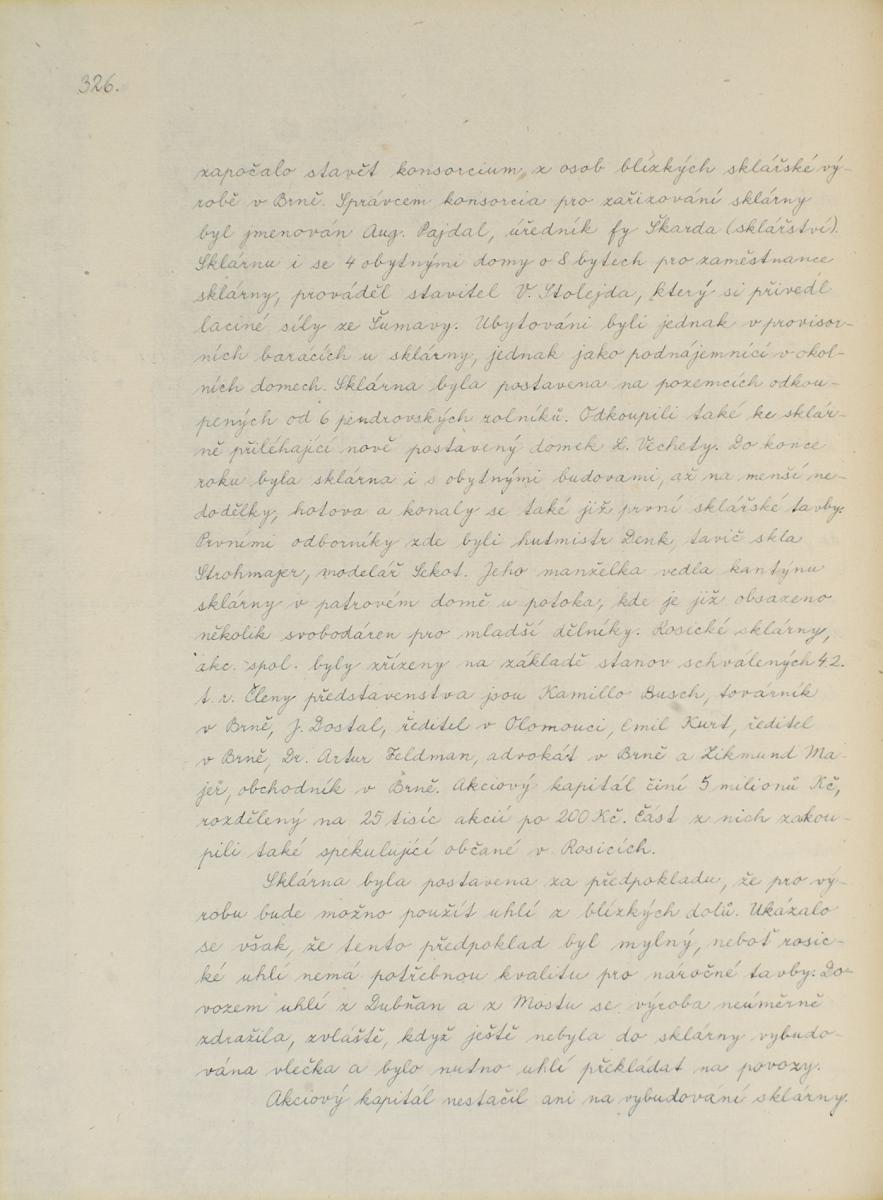 326.
započalo stavět konsorcium z osob blízkých sklářské vý-
robě v Brně. Správcem konsorcia pro zařizování sklárny
byl jmenován Aug. Pajdal, úředník fy Škarda (sklářství).
Sklárnu i se 4 obytnými domy o 8 bytech pro zaměstnance
sklárny, prováděl stavitel V. Stolejda, který si přivedl
laciné síly ze Šumavy. Ubytováni byli jednak v provisor-
ních barácích u sklárny, jednak jako podnájemníci v okol-
ních domech. Sklárna byla postavena na pozemcích odkou-
pených od 6 pendrovských rolníků. Odkoupili také ke sklár-
ně přiléhající nově postavený domek L. Véchety. Do konce
roku byla sklárna i s obytnými budovami, až na menší ne-
dodělky, hotova a konaly se také již první sklářské tavby.
Prvními odborníky zde byli hutmistr Denk, tavič skla
Strohmajer, modelář Sekot. Jeho manželka vedla kantýnu
sklárny v patrovém domě u potoka, kde je již obsazeno
několik svobodáren pro mladší dělníky. Rosické sklárny,
akc. spol. byly zřízeny na základě stanov schválených 4.2.
t. r. Členy představenstva jsou Kamillo Busch, továrník
v Brně, J. Dostal, ředitel v Olomouci, Emil Kurt, ředitel
v Brně, Dr. Artur Feldman, advokát v Brně a Zikmund Ma-
jer, obchodník v Brně. Akciový kapitál činí 5 milionů Kč,
rozdělený na 25 tisíc akcií po 200 Kč. Část z nich zakou-
pili také spekulující občané v Rosicích.
Sklárna byla postavena za předpokladu, že pro vý-
robu bude možno použít uhlí z blízkých dolů. Ukázalo
se však, že tento předpoklad byl mylný, neboť rosic-
ké uhlí nemá potřebnou kvalitu pro náročné tavby. Do-
vozem uhlí z Dubňan a z Mostu se výroba neúměrně
zdražila, zvláště, když ještě nebyla do sklárny vybudo-
vána vlečka a bylo nutno uhlí překládat na povozy.
Akciový kapitál nestačil ani na vybudování sklárny.